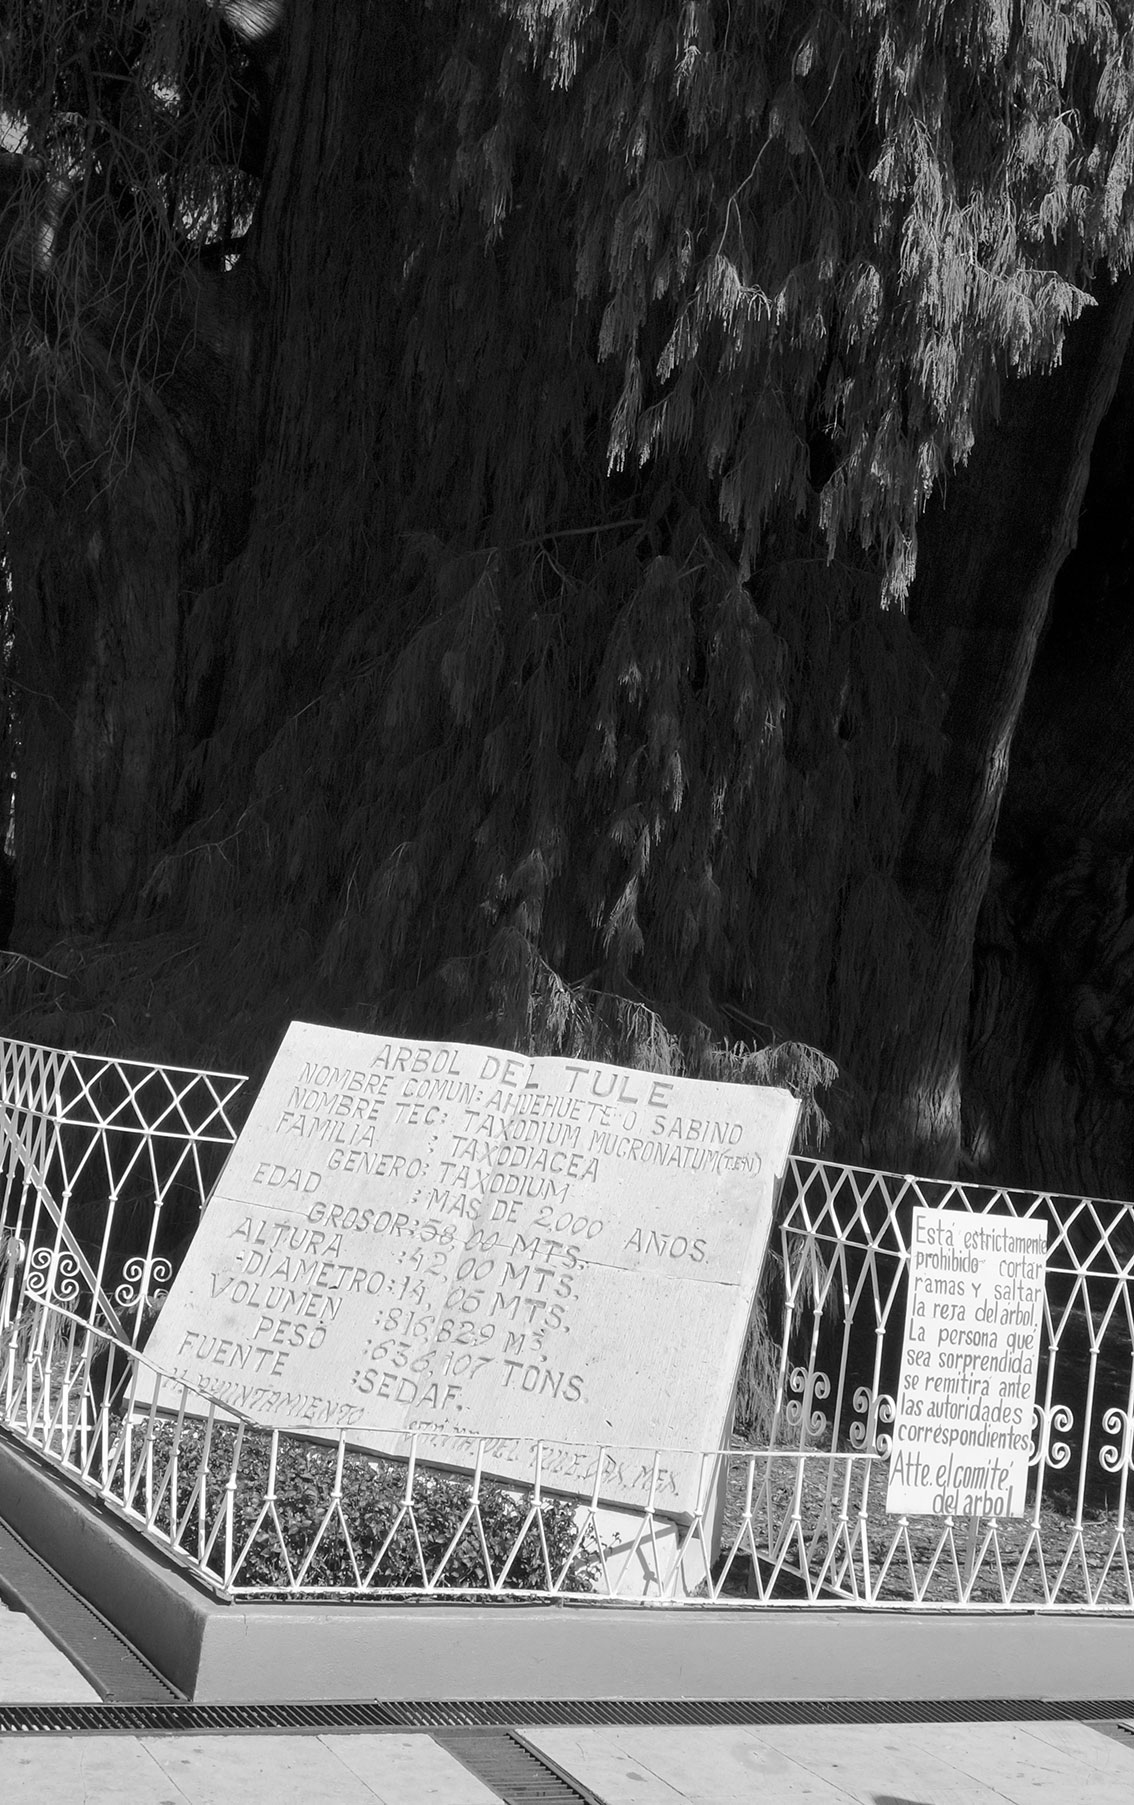 ARBOL DEL TULE
NOMBRE COMUN: AHUEHUETE O SABINO
NOMBRE TEC: TAXODIUM MUCRONATUM (TEN)
FAMILIA : TAXODIACEA
GENERO: TAXODIUM
EDAD : MAS DE 2,000 AÑOS.
GROSOR: 58,00 MTS.
ALTURA : 42,00 MTS.
DIAMETRO: 14,05 MTS.
VOLUMEN : 816,829 M3,
PESO : 636,107 TONS.
FUENTE : SEDAF.
H. AYUNTAMIENTO STA. MA. DEL TULE, OAX, MEX.
Está estrictamente
prohibido cortar
ramas y saltar
la reja del arbol.
La persona que
sea sorprendida
se remitira ante
las autoridades
correspondientes
Atte. el comité.
del arbol